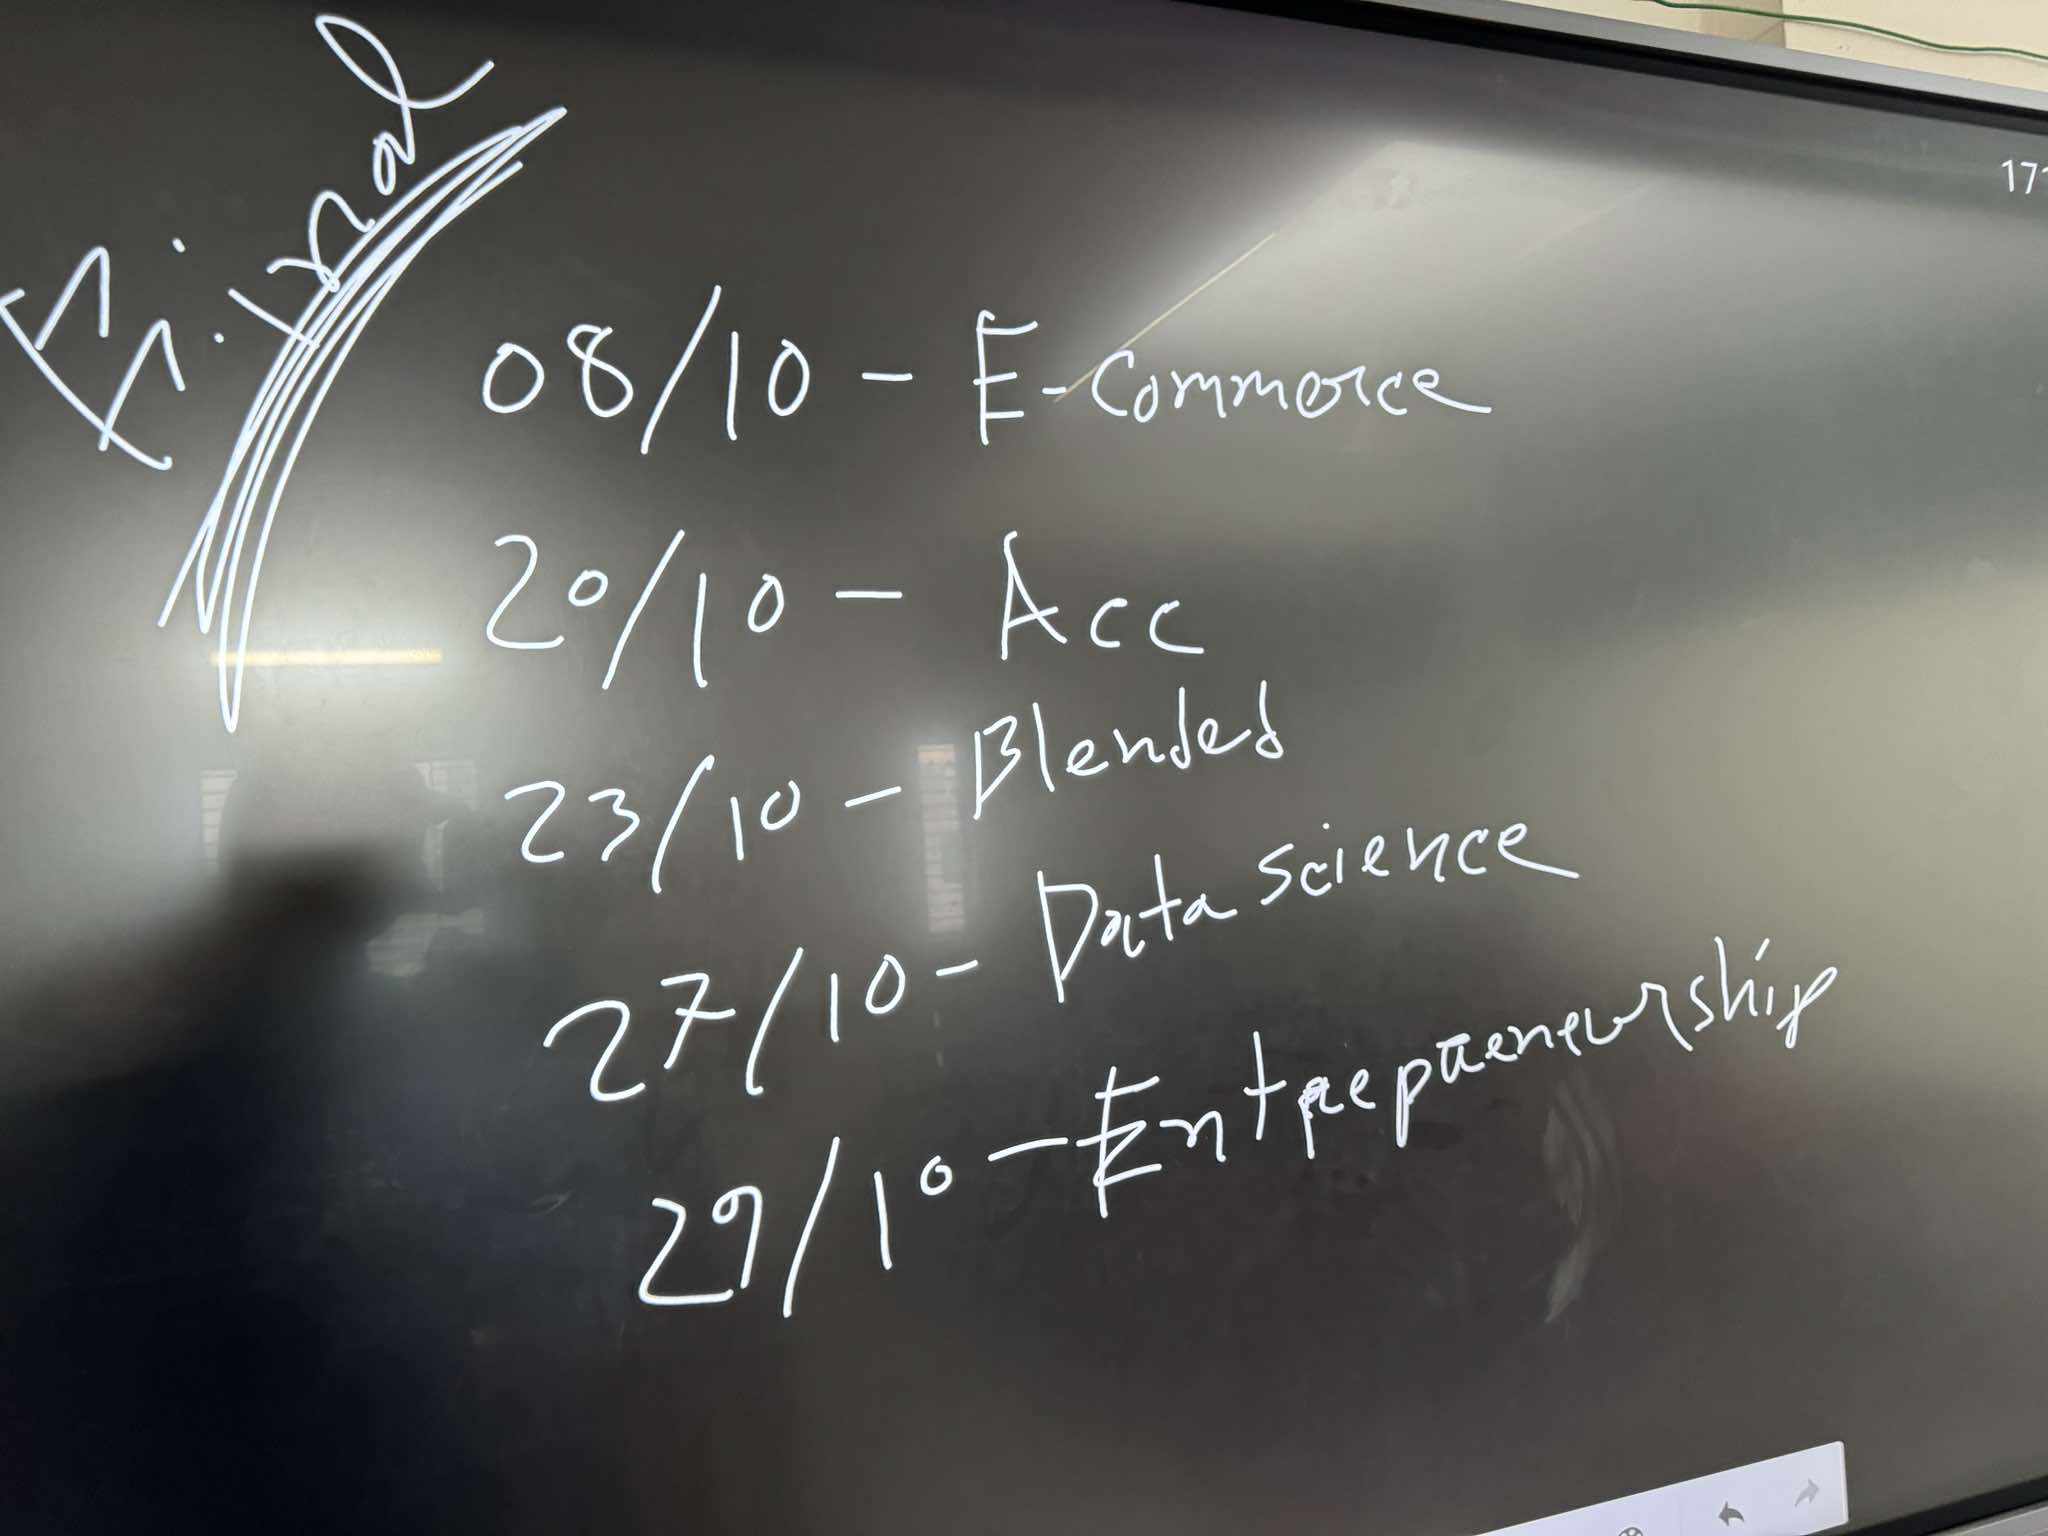 Final
171
08/10 - E-Commerce
20/10 - Acc
23/10 - Blended
27/10 - Data science
29/10 - Entrepreneurship